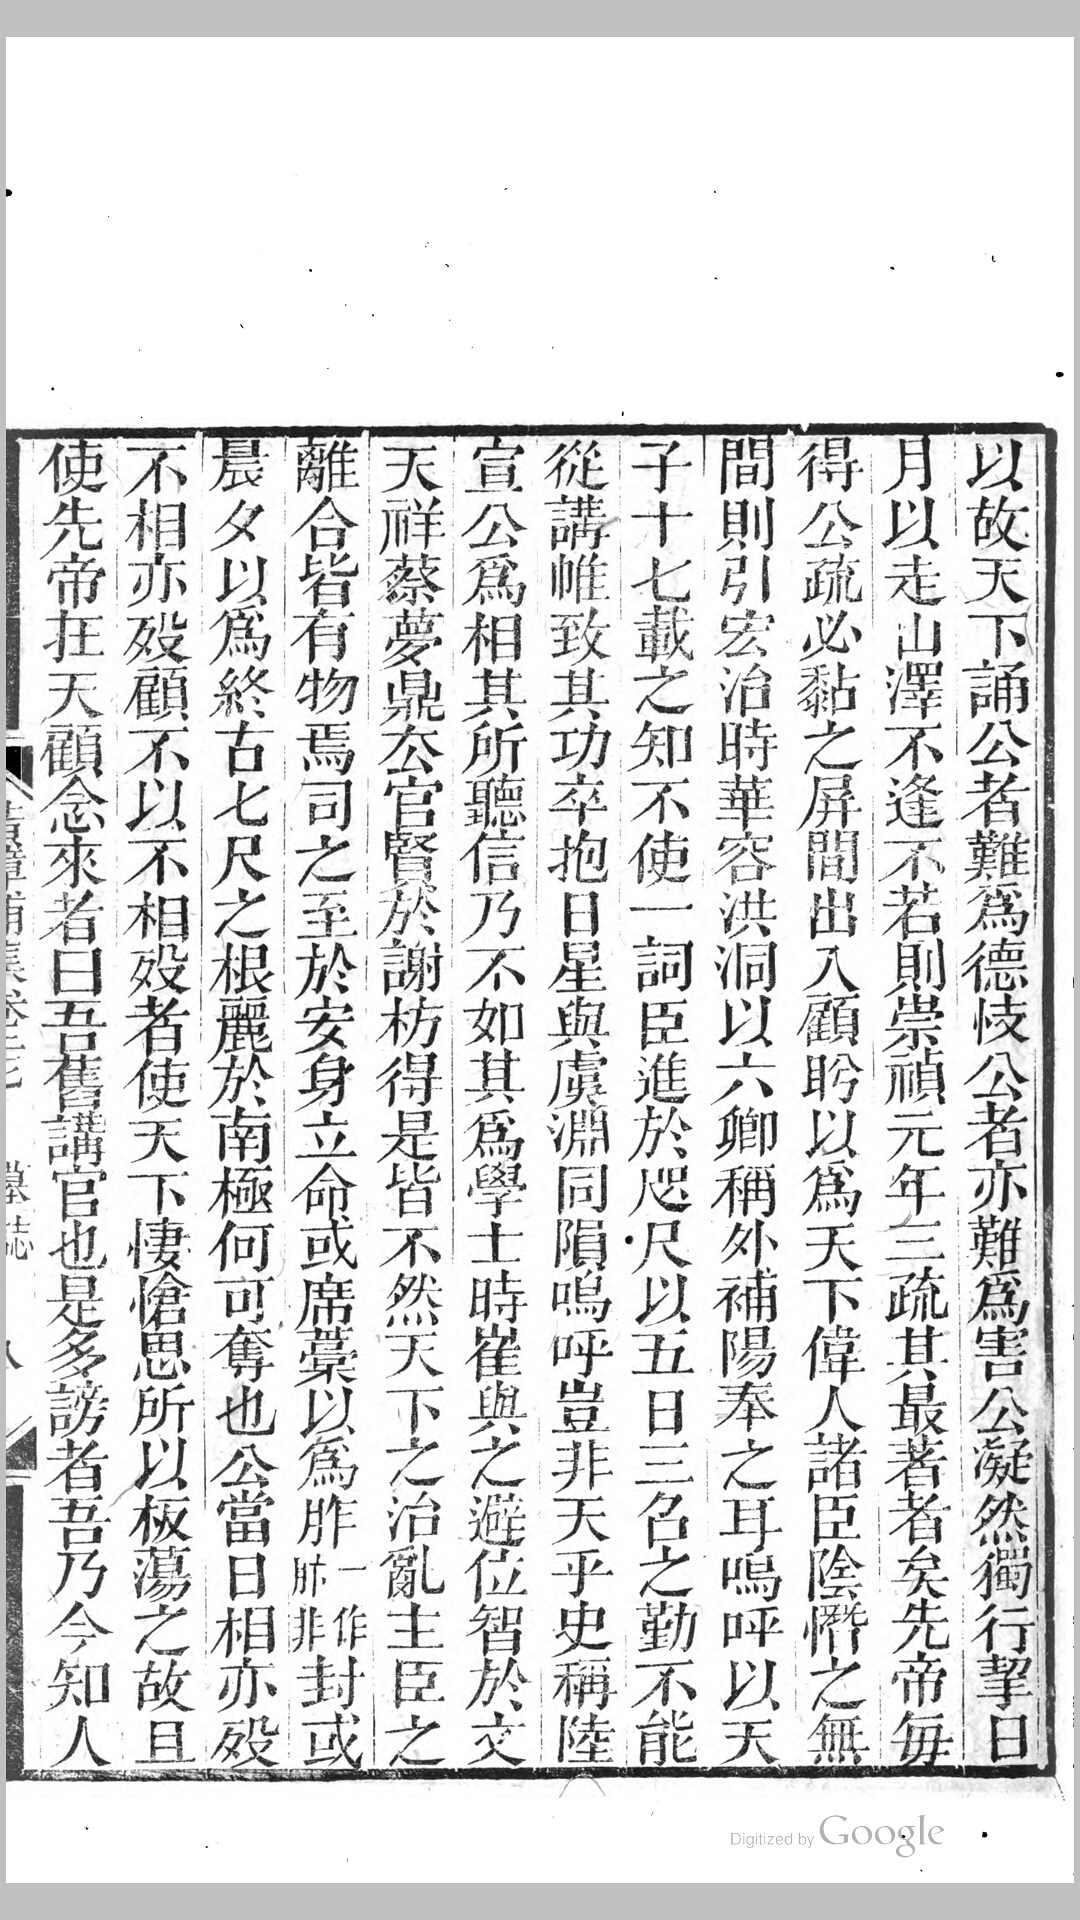 以故天下誦公者難爲德忮公者亦難爲害公凝然獨行挈日
月以走山澤不逢不若則崇禎元年三疏其最著者矣先帝每
得公疏必黏之屏間出入顧盻以爲天下偉人諸臣陰憯之無
間則引宏治時華容洪洞以六卿稱外補陽奉之耳嗚呼以天
子十七載之知不使一詞臣進於咫尺以五日三名之勤不能
從講帷致其功卒抱日星與虞淵同隕嗚呼豈非天乎史稱陸
宣公爲相其所聽信乃不如其爲學士時崔與之避位智於文
天祥蔡夢鼎厺官賢於謝枋得是皆不然天下之治亂主臣之
離合皆有物焉司之至於安身立命或席藁以爲胙一作胏非封或
晨夕以爲終古七尺之根麗於南極何可奪也公當日相亦殁
不相亦殁顧不以不相殁者使天下悽愴思所以板蕩之故且
使先帝在天顧念來者曰吾舊講官也是多謗者吾乃今知人
黃漳浦集卷二七 墓誌 八
Digitized by Google